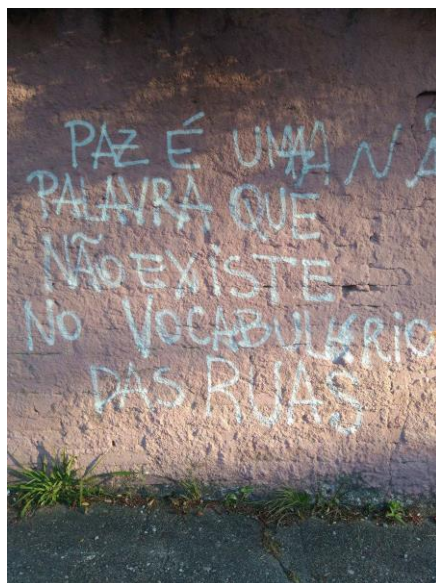 PAZ É UMA NÃ
PALAVRA QUE
NÃO EXISTE
NO VOCABULÁRIO
DAS RUAS